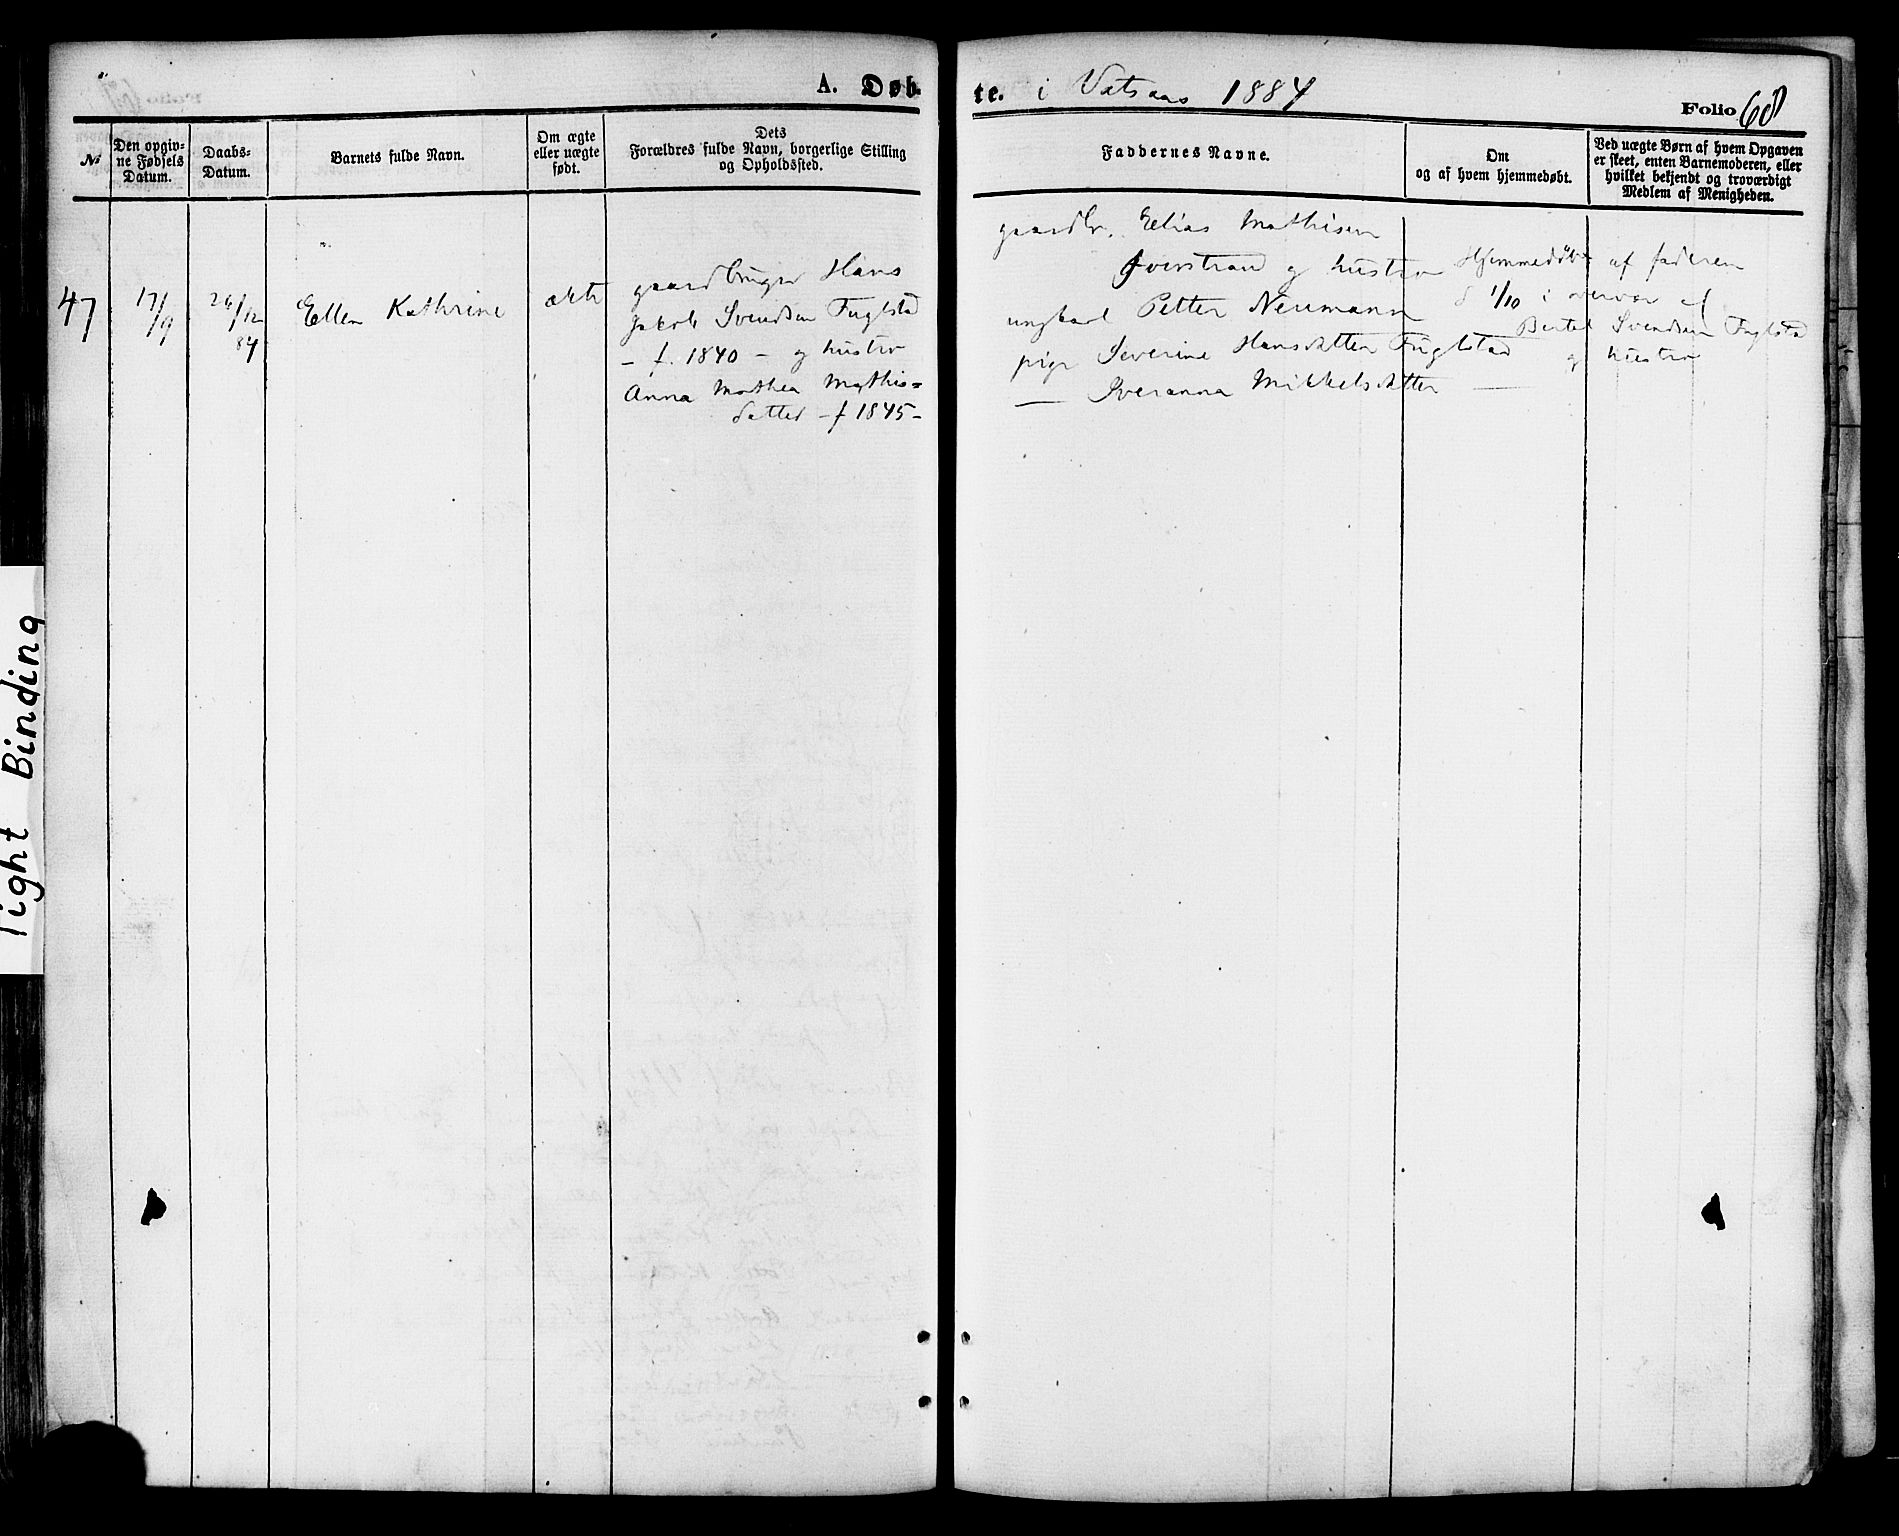 A. Døb-
te. i Vatsaas 1884
Folio 68
No
Den opgiv-
ne Fødsels
Datum.
Daabs-
Datum.
Barnets fulde Navn.
Om ægte
eller uægte
født.
Dets
Forældres fulde Navn, borgerlige Stilling
og Opholdssted.
Faddernes Navne.
Om
og af hvem hjemmedøbt.
Ved uægte Børn af hvem Opgaven
er skeet, enten Barnemoderen, eller
hvilket bekjendt og troværdigt
Medlem af Menigheden.
47
17/9
26/12
84
Ellen Kathrine
ækte
gaardbruger Hans
Jakob Svendsen Fuglstad
- f. 1840 - og hustro
Anna Mathea Mathis=
datter - f 1845 -
gaardbr. Elias Mathisen
Iverstrand og hustro
ungkarl Petter Neumann
pige Severine Hansdatter Fuglstad
— Iveranna Mikkelsdatter —
Hjemmedøbt af faderen
d 1/10 i overvær af
Bertel Svendsen Fuglstad
og hustro
Tight Binding